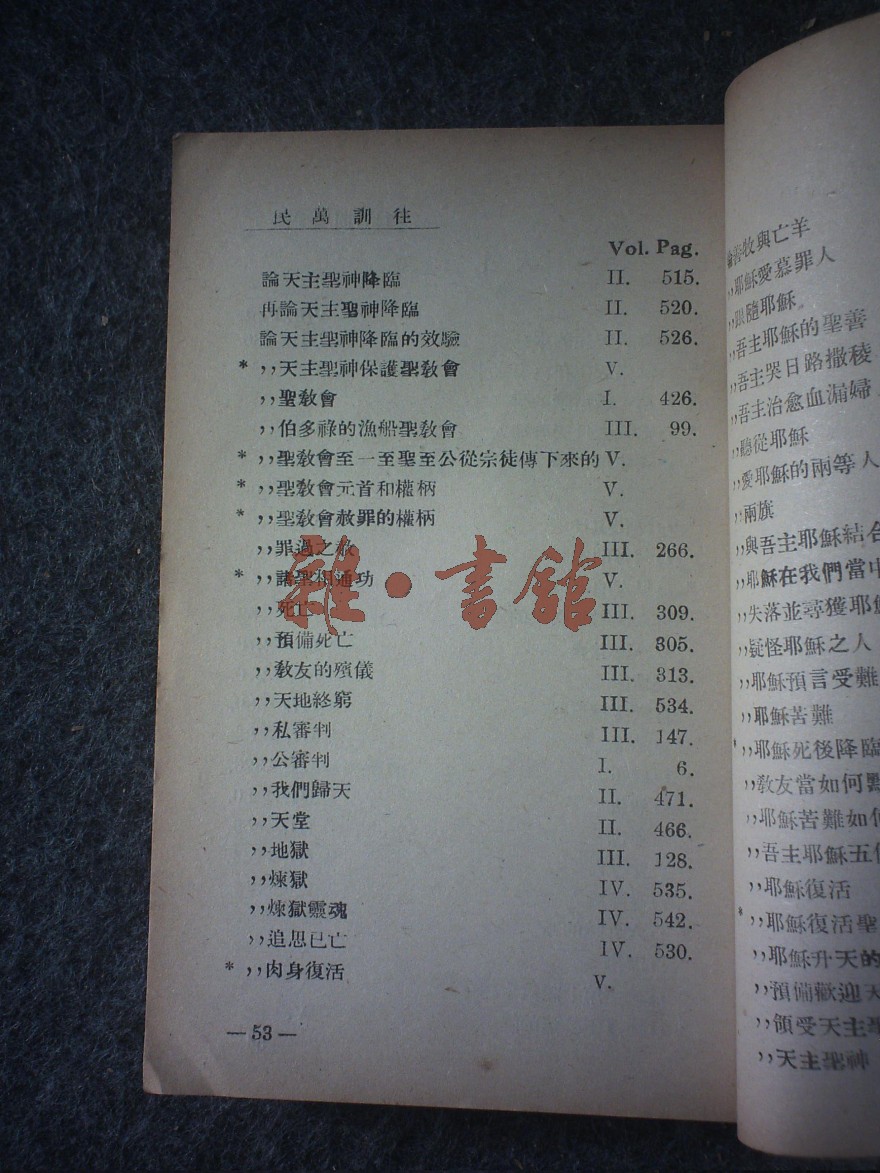 民萬訓往
Vol. Pag.
論天主聖神降臨 II. 515.
再論天主聖神降臨 II. 520.
論天主聖神降臨的效驗 II. 526.
* ,,天主聖神保護聖敎會 V.
,,聖敎會 I. 426.
,,伯多祿的漁船聖敎會 III. 99.
* ,,聖敎會至一至聖至公從宗徒傳下來的 V.
* ,,聖敎會元首和權柄 V.
* ,,聖敎會赦罪的權柄 V.
,,罪過之赦 III. 266.
* ,,諸聖相通功 V.
,,死亡 III. 309.
,,預備死亡 III. 305.
,,敎友的殯儀 III. 313.
,,天地終窮 III. 534.
,,私審判 III. 147.
,,公審判 I. 6.
,,我們歸天 II. 471.
,,天堂 II. 466.
,,地獄 III. 128.
,,煉獄 IV. 535.
,,煉獄靈魂 IV. 542.
,,追思已亡 IV. 530.
* ,,肉身復活 V.
— 53 —
雜·書館
論善牧與亡羊
,,耶穌愛慕罪人
,,跟隨耶穌
,,吾主耶穌的聖善
,,吾主哭日路撒稜
,,吾主治愈血漏婦
,,聽從耶穌
,,愛耶穌的兩等人
,,兩旗
,,與吾主耶穌結合
,,耶穌在我們當中
,,失落並尋獲耶穌
,,疑怪耶穌之人
,,耶穌預言受難
,,耶穌苦難
* ,,耶穌死後降臨
,,敎友當如何
,,耶穌苦難如何
,,吾主耶穌五
,,耶穌復活
* ,,耶穌復活聖
,,耶穌升天的
,,預備歡迎天
,,領受天主聖
,,天主聖神